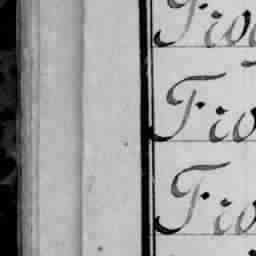 Fio
Fio
Fio